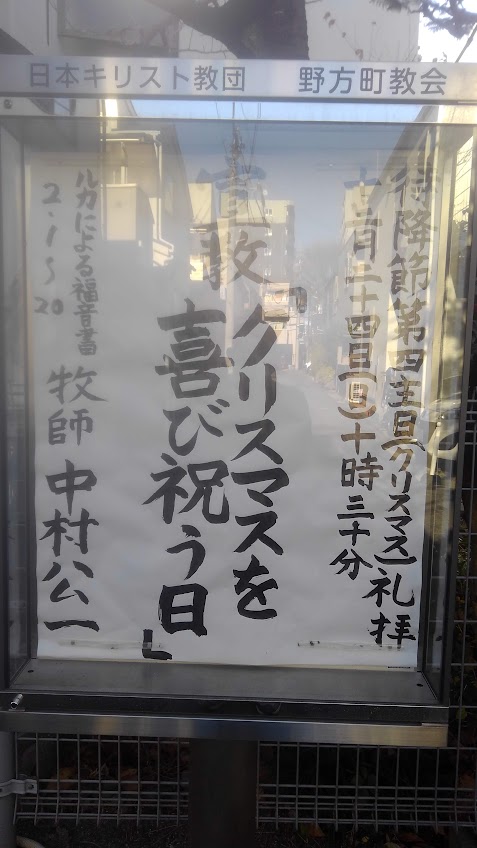 日本キリスト教団 野方町教会
待降節第四主日(クリスマス)礼拝
十二月二十四日(日)十時三十分
宣教「クリスマスを
喜び祝う日」
ルカによる福音書
2.1~20
牧師 中村公一